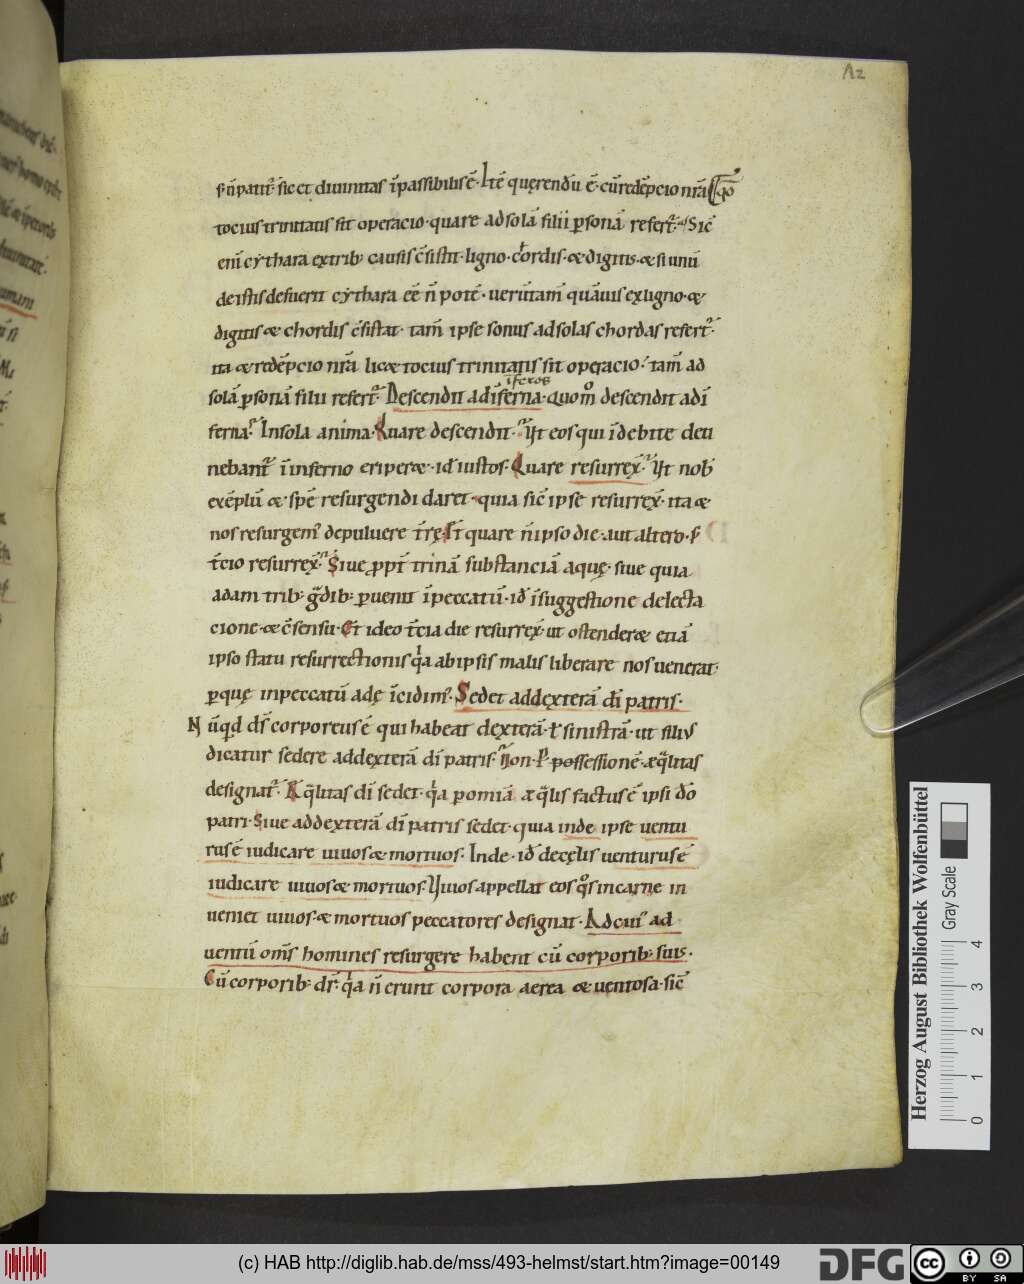 A2
s; n̄ patit᷑. sic et diuinitas īpassibilis ē. Itē quęrendū ē. cū redēpcio nr̄a
tocius trinitatis sit operacio. quare ad solā filii psonā refert᷑. Sic̄
eni cythara ex trib; causis c̄sistit. ligno. chordis. & digitis. & si unū
de istis defuerit cythara eē n̄ potē. uerūtam̄ quāuis ex ligno. &
digitis & chordis c̄sistat. tam̄ ipse sonus ad solas chordas refert᷑.
ita & redēpcio nr̄a lic& tocius trinitatis sit operacio. tam̄ ad
īferos
solā psonā filii refert᷑. Descendit ad īferna. Quom̊ descendit ad ī
ferna? In sola anima. Quare descendit? Ut eos qui īdebite deti
nebant᷑ ī inferno eriper&. id ē iustos. Quare resurrex̄? Ut nob̄
exēplū & spē resurgendi daret. quia sic̄ ipse resurrex̄. ita &
nos resurgem᷒ de puluere tr̄ę. Et quare n̄ ipso die aut altero. s;
t̄cio resurrex̄? Siue ppt̄ trinā substanciā aquę. siue quia
adam trib; gͣdib; puenit ī peccatū. id ē ī suggestione delecta
cione. & c̄sensu. Et ideo t̄cia die resurrex̄. ut ostender& etiā
ipso statu resurrectionis qͥa ab ipsis malis liberare nos uenerat.
p quę in peccatū adę īcidim᷒. Sedet ad dexterā dī patris.
Nūqͥd ds̄ corporeus ē qui habeat dexterā. ł sinistrā. ut filius
dicatur sedere ad dexterā dī patris? Non. s; possessionē. æqͣlitas
designat᷑. Aqͣlitas dī sedet. qͥa p omīa æqͣlis factus ē ipsi dō
patri. Siue ad dexterā dī patris sedet. quia inde ipse uentu
rus ē iudicare uiuos & mortuos. Inde. id ē de cęlis uenturus ē
iudicare uiuos & mortuos. Uiuos appellat eos qͦs in carne in
ueniet uiuos. & mortuos peccatores designat. Ad cui᷒ ad
uentū oms̄ homines resurgere habent cū corporib; suis.
Cū corporib; dr̄. qͥa n̄ erunt corpora aerea & uentosa. sic̄
Herzog August Bibliothek Wolfenbüttel
Gray Scale
0 1 2 3 4
(c) HAB http://diglib.hab.de/mss/493-helmst/start.htm?image=00149
DFG
cc BY SA